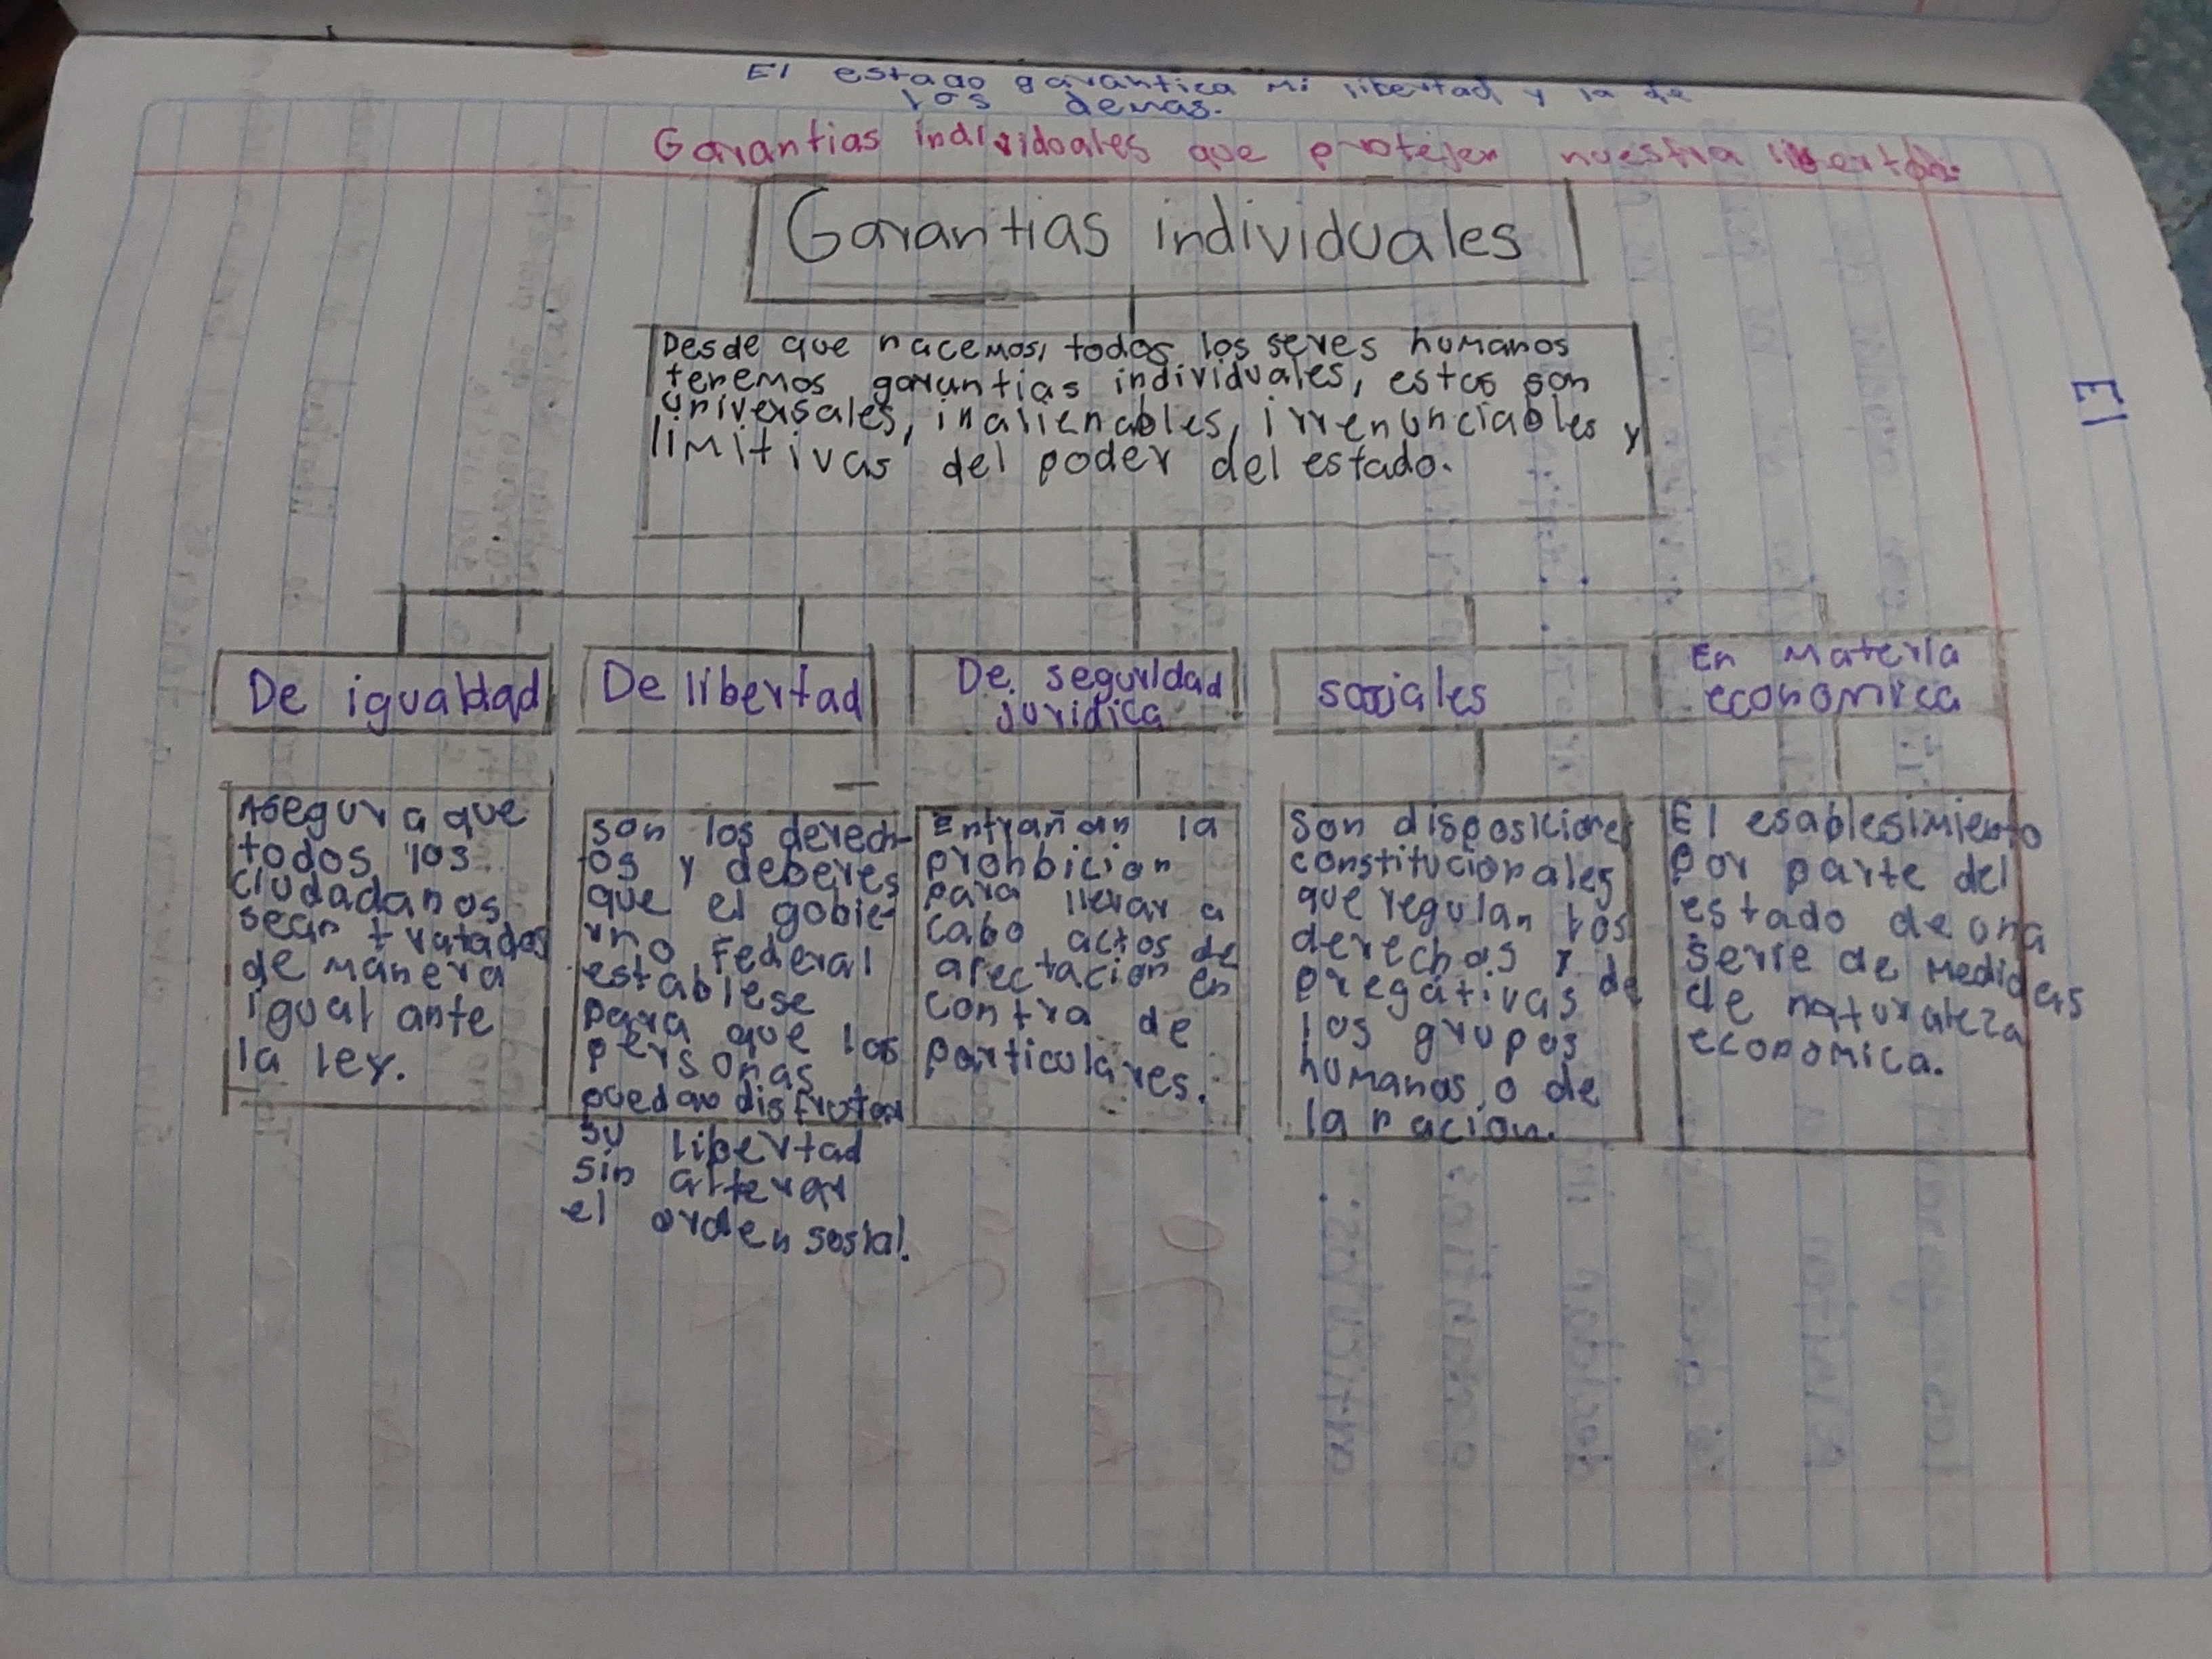 El estado garantica mi libertad y la de
los demas.
Garantias individuales que protejen nuestra libertad.
Garantias individuales
Desde que nacemos, todos los seres humanos
tenemos garantias individuales, estas son
universales, inalienables, irrenunciables y
limitivas del poder del estado.
El
De igualdad
De libertad
De seguridad
juridica
sociales
En materia
economica
Asegura que
todos los
ciudadanos
sean tratados
de manera
igual ante
la ley.
son los derech-
os y deberes
que el gobie-
rno Federal
establese
para que las
personas
puedan disfrutar
su libertad
sin alterar
el orden sosial.
Entrañan la
prohbicion
para llevar a
cabo actos de
afectacion en
contra de
particulares.
Son disposiciones
constitucionales
que regulan los
derechos y
pregativas de
los grupos
humanos o de
la nacion.
El esablesimiento
por parte del
estado de una
serie de medidas
de naturaleza
economica.